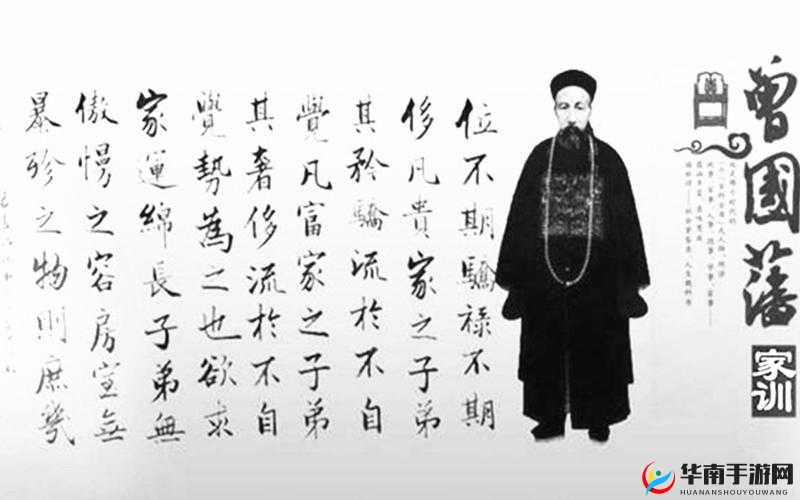 曾國藩
家训
位不期驕禄不期
侈凡貴家之子弟
其矜驕流於不自
覺凡富家之子弟
其奢侈流於不自
覺勢為之也欲求
家運綿長子弟無
傲慢之容房室無
暴殄之物則庶幾
华南手游网
HUANANSHOUYOUWANG